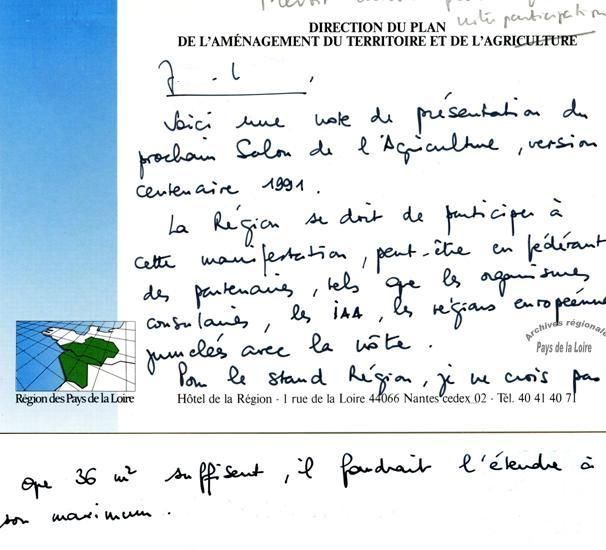 votre participation
DIRECTION DU PLAN
DE L'AMÉNAGEMENT DU TERRITOIRE ET DE L'AGRICULTURE
J. L,
Voici une note de présentation du
prochain Salon de l'Agriculture, version
centenaire 1991.
La Région se doit de participer à
cette manifestation, peut-être en fédérant
des partenaires, tels que les organismes
consulaires, les IAA, les régions européennes
jumelées avec la nôtre.
Archives régionale
Pays de la Loire
Pour le stand Région, je ne crois pas
Région des Pays de la Loire
Hôtel de la Région - 1 rue de la Loire 44066 Nantes cedex 02 - Tél. 40 41 40 71
que 36 m² suffisent, il faudrait l'étendre à
son maximum.